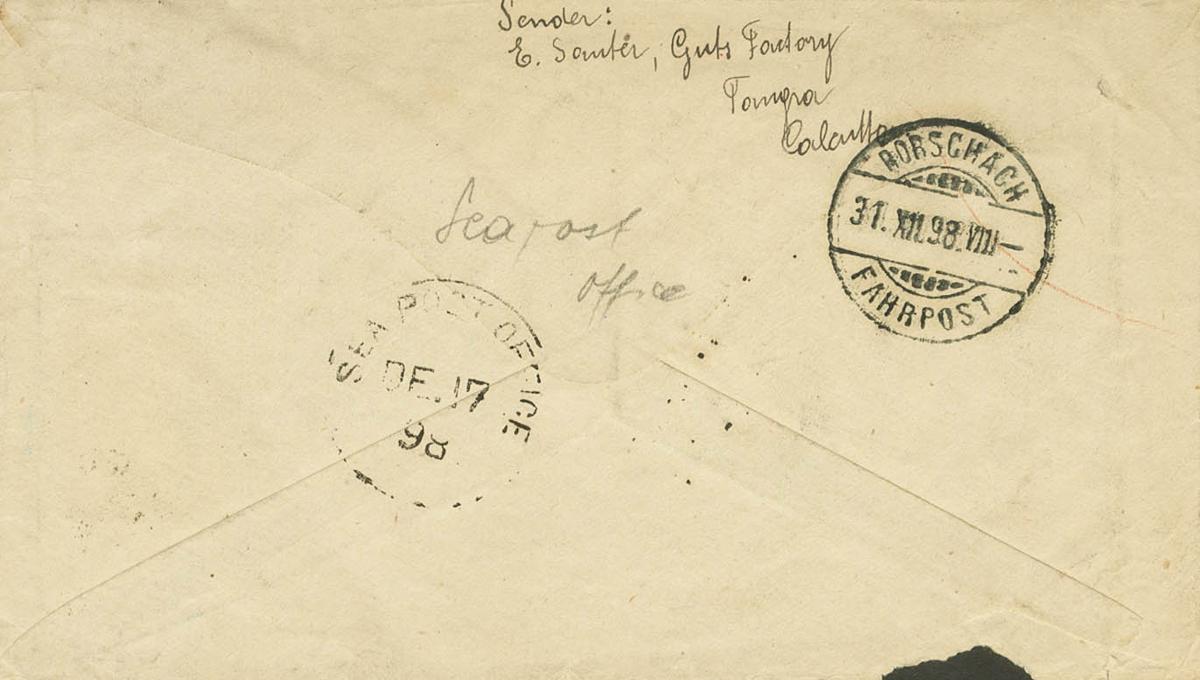 Sender:
E. Sauter, Guts Factory
Tangra
Calcutta
RORSCHACH
31. XII. 98. VIII –
FAHRPOST
Sea post
office
SEA POST OFFICE
DE. 17
98